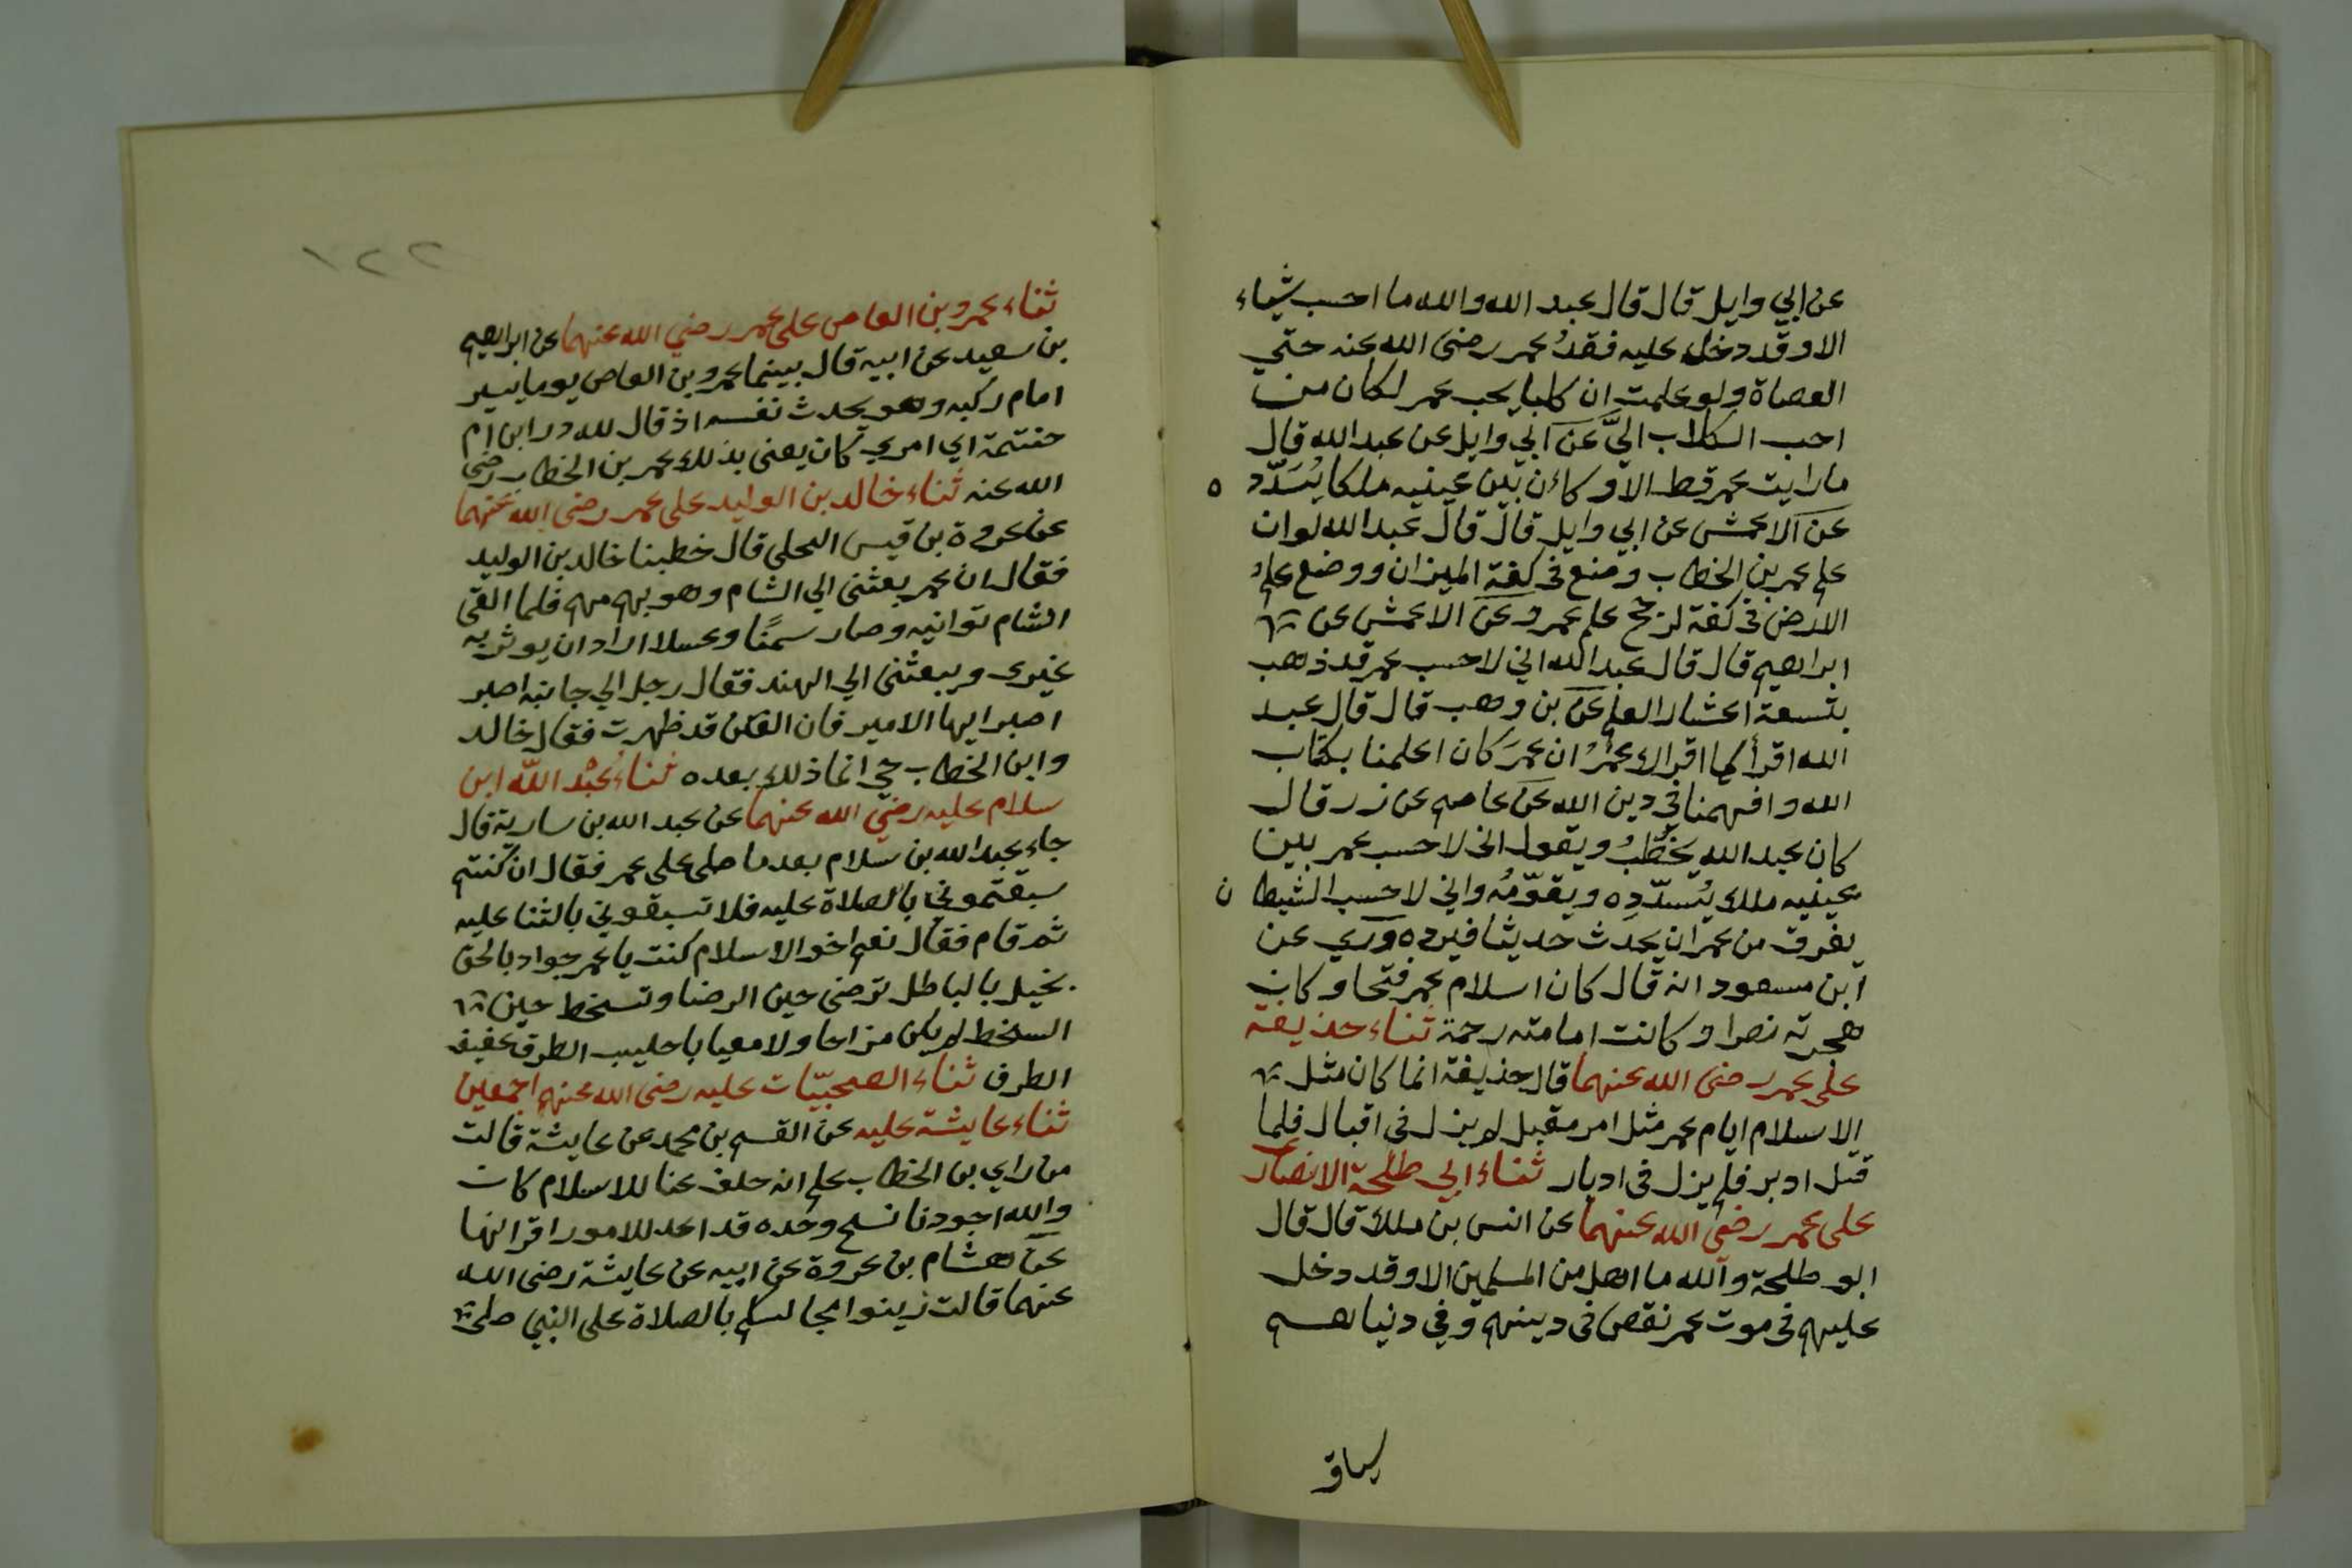 عن ابي وايل قال قال عبد الله والله ما احسب شياء
الا وقد دخل عليه فقدُ عمر رضى الله عنه حتي
العصاة ولو علمت ان كلبا يحب عمر لكان من
احب الكلاب اليَّ عن ابي وايل عن عبد الله قال
ما رايت عمر قط الا وكان بين عينيه ملكا يُسَدّد ه
عن الاعمش عن ابي وايل قال قال عبد الله لو ان
علم عمر بن الخطاب وضع فى كفة الميزان ووضع علم
الارض فى كفة لرجح علم عمر وعن الاعمش عن
ابراهيم قال قال عبد الله اني لاحسب عمر قد ذهب
بتسعة اعشار العلم عن بن وهب قال قال عبد
الله اقرأ كما اقرالا عمرُ ان عمرَ كان اعلمنا بكتاب
الله وافهمنا في دين الله عن عاصم عن زر قال
كان عبد الله يخطُبُ ويقول اني لاحسب عمر بين
عينيه ملك يُسدّده ويقوّمُه واني لاحسب الشيطا ن
يفرق من عمر ان يحدث حديثا فيرده وروي عن
ابن مسعود انه قال كان اسلام عمر فتحا وكانت
هجرته نصرا وكانت امامته رحمة ثناء حذيفة
على عمر رضى الله عنهما قال حذيفة انما كان مثل
الاسلام ايام عمر مثل امر مقبل لم يزل فى اقبال فلما
قتل ادبر فلم يزل فى ادبار ثناء ابي طلحة الانصار
على عمر رضى الله عنهما عن انس بن ملك قال قال
ابو طلحة والله ما اهل من المسلمين الا وقد دخل
عليهم فى موت عمر نقص فى دينهم وفي دنياهم
١٢٢
ثناء عمرو بن العاص على عمر رضي الله عنهما عن ابراهيم
بن سعيد عن ابيه قال بينما عمرو بن العاص يوما يسير
امام ركبه وهو يحدث نفسه اذ قال لله در ابن ام
حنتمة اي امري كان يعنى بذلك عمر بن الخطاب رضى
الله عنه ثناء خالد بن الوليد على عمر رضى الله عنهما
عن عروة بن قيس البجلى قال خطبنا خالد بن الوليد
فقال ان عمر بعثنى الي الشام وهو بهم مهم فلما القى
الشام توانيه وصار سمنًا وعسلا اراد ان يوثر به
غيرى ويبعثنى الي الهند فقال رجل الي جانبه اصبر
اصبر ايها الامير فان الفتن قد ظهرت فقال خالد
وابن الخطاب حي انما ذلك بعده ثناءُ عَبْد اللّه ابن
سلام عليه رضي الله عنهما عن عبد الله بن سارية قال
جاء عبد الله بن سلام بعد ما صلى على عمر فقال ان كنتم
سبقتموني بالصلاة عليه فلا تسبقوني بالثنا عليه
ثم قام فقال نعم اخو الاسلام كنت يا عمر جواد بالحق
بخيل بالباطل ترضى حين الرضا وتسخط حين
السخط لم يكن مزاحا ولا معيابا حليب الطرف عفيف
الطرف ثناء الصحبيّات عليه رضى الله عنهم اجمعين
ثناء عايشة عليه عن القسم بن محمد عن عايشة قالت
من راي بن الخطاب علم انه خلف عنا للاسلام كان
والله اجودنا نسج وحده قد اعد للامور اقرانها
عن هشام بن عروة عن ابيه عن عايشة رضى الله
عنهما قالت زينوا مجالسكم بالصلاة على النبي صلى